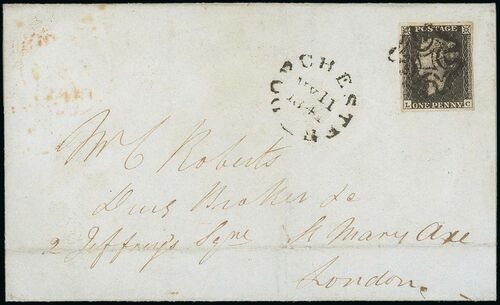 POSTAGE
L ONE PENNY C
DORCHESTER
MY 11
1841
Mr C Roberts
Drug Broker &c
2 Jeffrey's Sqre St Mary Axe
London.